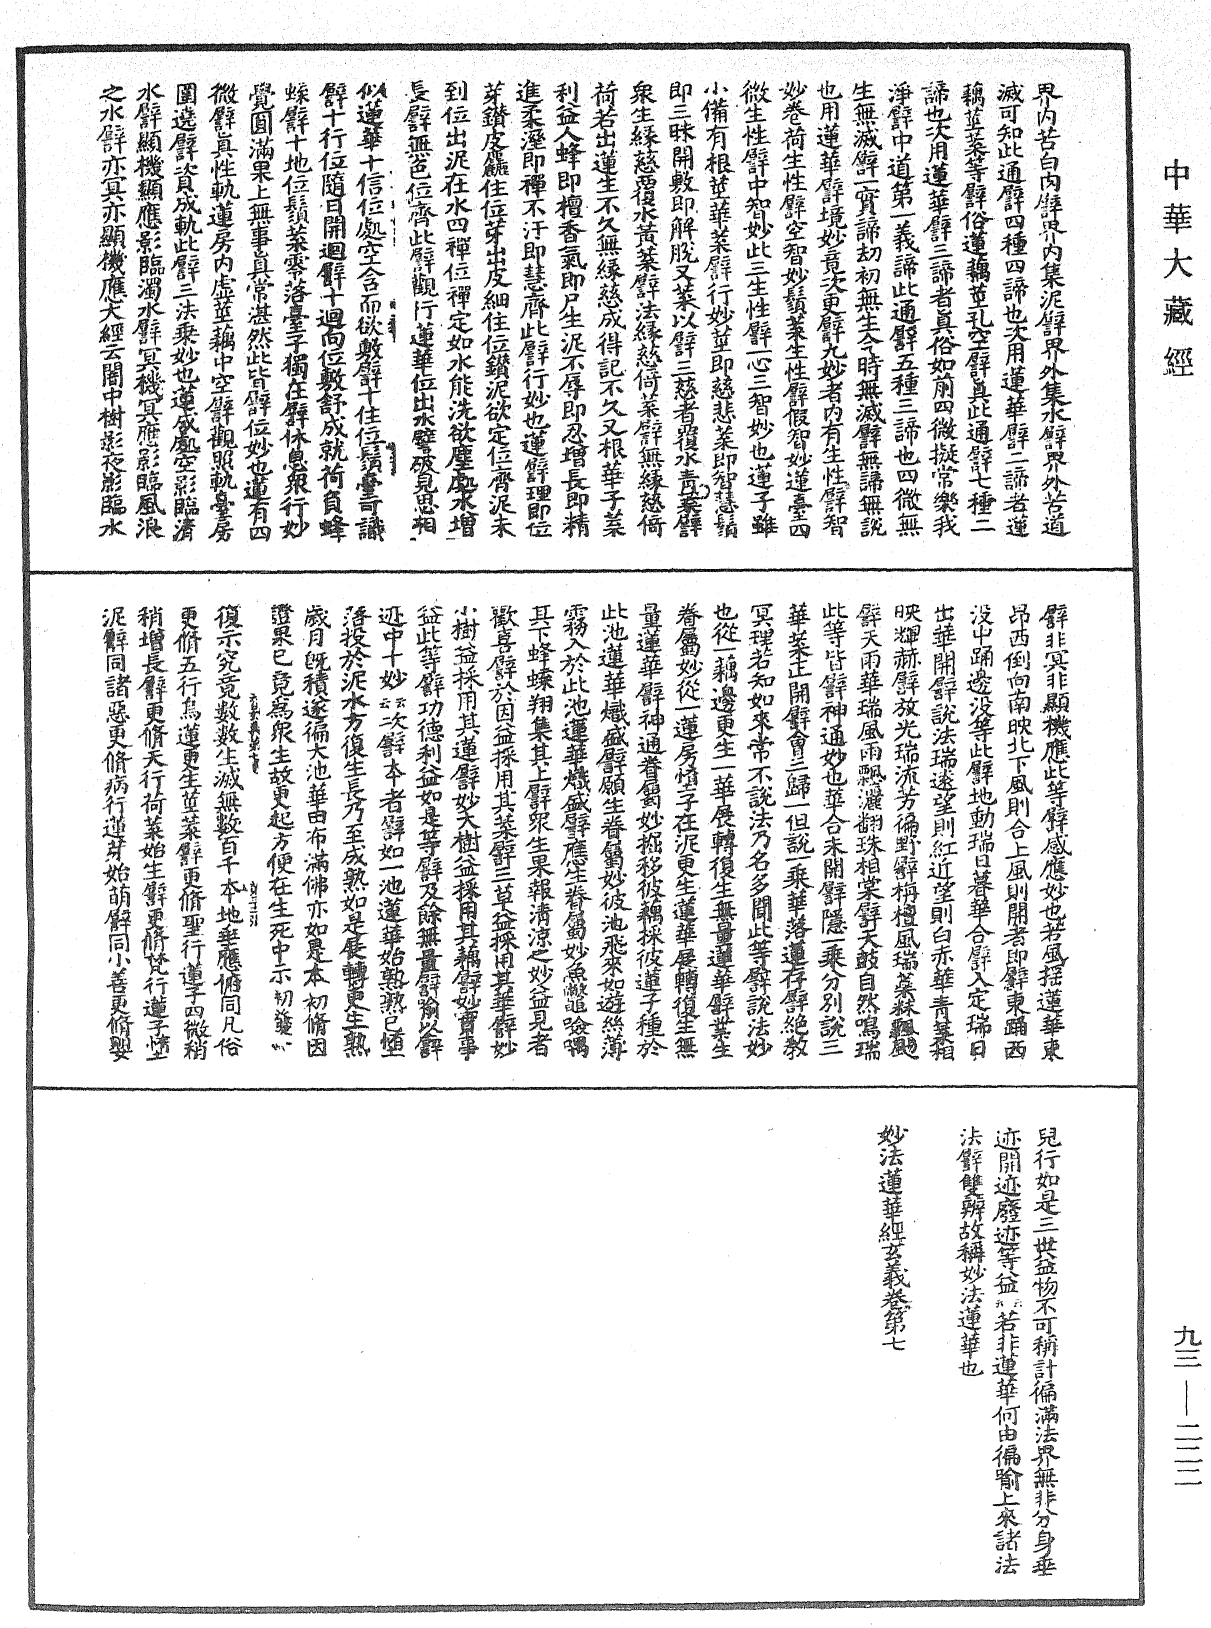 中華大藏經
界内苦白肉譬界内集泥譬界外集水譬界外苦道
滅可知此通譬四種四諦也次用蓮華譬二諦者蓮
藕莖葉等譬俗蓮藕莖孔空譬眞此通譬七種二
諦也次用蓮華譬三諦者眞俗如前四微擬常樂我
淨譬中道第一義諦此通譬五種三諦也四微無
生無滅譬一實諦劫初無生今時無滅譬無諦無說
也用蓮華譬境妙竟次更譬九妙者内有生性譬智
妙卷荷生性譬空智妙鬚葉生性譬假智妙蓮臺四
微生性譬中智妙此三生性譬一心三智妙也蓮子雖
小備有根莖華葉譬行妙莖即慈悲葉即智慧鬚
即三昧開敷即解脫又葉以譬三慈者覆水青葉譬
衆生緣慈覆水黃葉譬法緣慈倚葉譬無緣慈倚
荷若出蓮生不久無緣慈成得記不久又根華子葉
利益人蜂即檀香氣即尸生泥不辱即忍增長即精
進柔溼即禪不汙即慧齊此譬行妙也蓮譬理即位
芽鑽皮麤住位芽出皮細住位鑽泥欲定位齊泥未
到位出泥在水四禪位禪定如水能洗欲塵處水增
長譬無色位齊此譬觀行蓮華位出水譬破見思相
似蓮華十信位處空含而欲敷譬十住位鬚臺可識
譬十行位隨日開迴譬十迴向位敷舒成就荷負蜂
蝶譬十地位鬚葉零落臺子獨在譬休息衆行妙
覺圓滿果上無事眞常湛然此皆譬位妙也蓮有四
微譬眞性軌蓮房内虛莖藕中空譬觀照軌臺房
圍遶譬資成軌此譬三法乘妙也蓮成處空影臨清
水譬顯機顯應影臨濁水譬冥機冥應影臨風浪
之水譬亦冥亦顯機應大經云闇中樹影夜影臨水
譬非冥非顯機應此等譬感應妙也若風搖蓮華東
昂西倒向南映北下風則合上風則開者即譬東踊西
没中踊邊没等此譬地動瑞日暮華合譬入定瑞日
出華開譬說法瑞遠望則紅近望則白赤華青葉相
映輝赫譬放光瑞流芳徧野譬栴檀風瑞葉蘇飄颺
譬天雨華瑞風雨飄灑翻珠相棠譬天鼓自然鳴瑞
此等皆譬神通妙也華合未開譬隱一乘分別說三
華葉正開譬會三歸一但說一乘華落蓮存譬絶教
冥理若知如來常不說法乃名多聞此等譬說法妙
也從一藕邊更生一華展轉復生無量蓮華譬業生
眷屬妙從一蓮房墮子在泥更生蓮華展轉復生無
量蓮華譬神通眷屬妙掘移彼藕採彼蓮子種於
此池蓮華熾盛譬願生眷屬妙彼池飛來如遊絲薄
霧入於此池蓮華熾盛譬應生眷屬妙魚鼈噞喁
其下蜂蝶翔集其上譬衆生果報清涼之妙益見者
歡喜譬於因益採用其葉譬三草益採用其華譬妙
小樹益採用其蓮譬妙大樹益採用其藕譬妙實事
益此等譬功德利益如是等譬及餘無量譬喻以譬
迹中十妙云云次譬本者譬如一池蓮華始熟熟已墮
落投於泥水方復生長乃至成熟如是展轉更生熟
歲月既積遂徧大池華由布滿佛亦如是本初脩因
證果已竟爲衆生故更起方便在生死中示初發
復示究竟數數生滅無數百千本地垂應俯同凡俗
更脩五行烏蓮更生莖葉譬更脩聖行蓮子四微稍
稍增長譬更脩天行荷葉始生譬更脩梵行蓮子墮
泥譬同諸惡更脩病行蓮芽始萌譬同小善更脩嬰
兒行如是三世益物不可稱計徧滿法界無非分身垂
迹開迹廢迹等益云云若非蓮華何由徧喻上來諸法
法譬雙辨故稱妙法蓮華也
妙法蓮華經玄義卷第七
九三—二二二